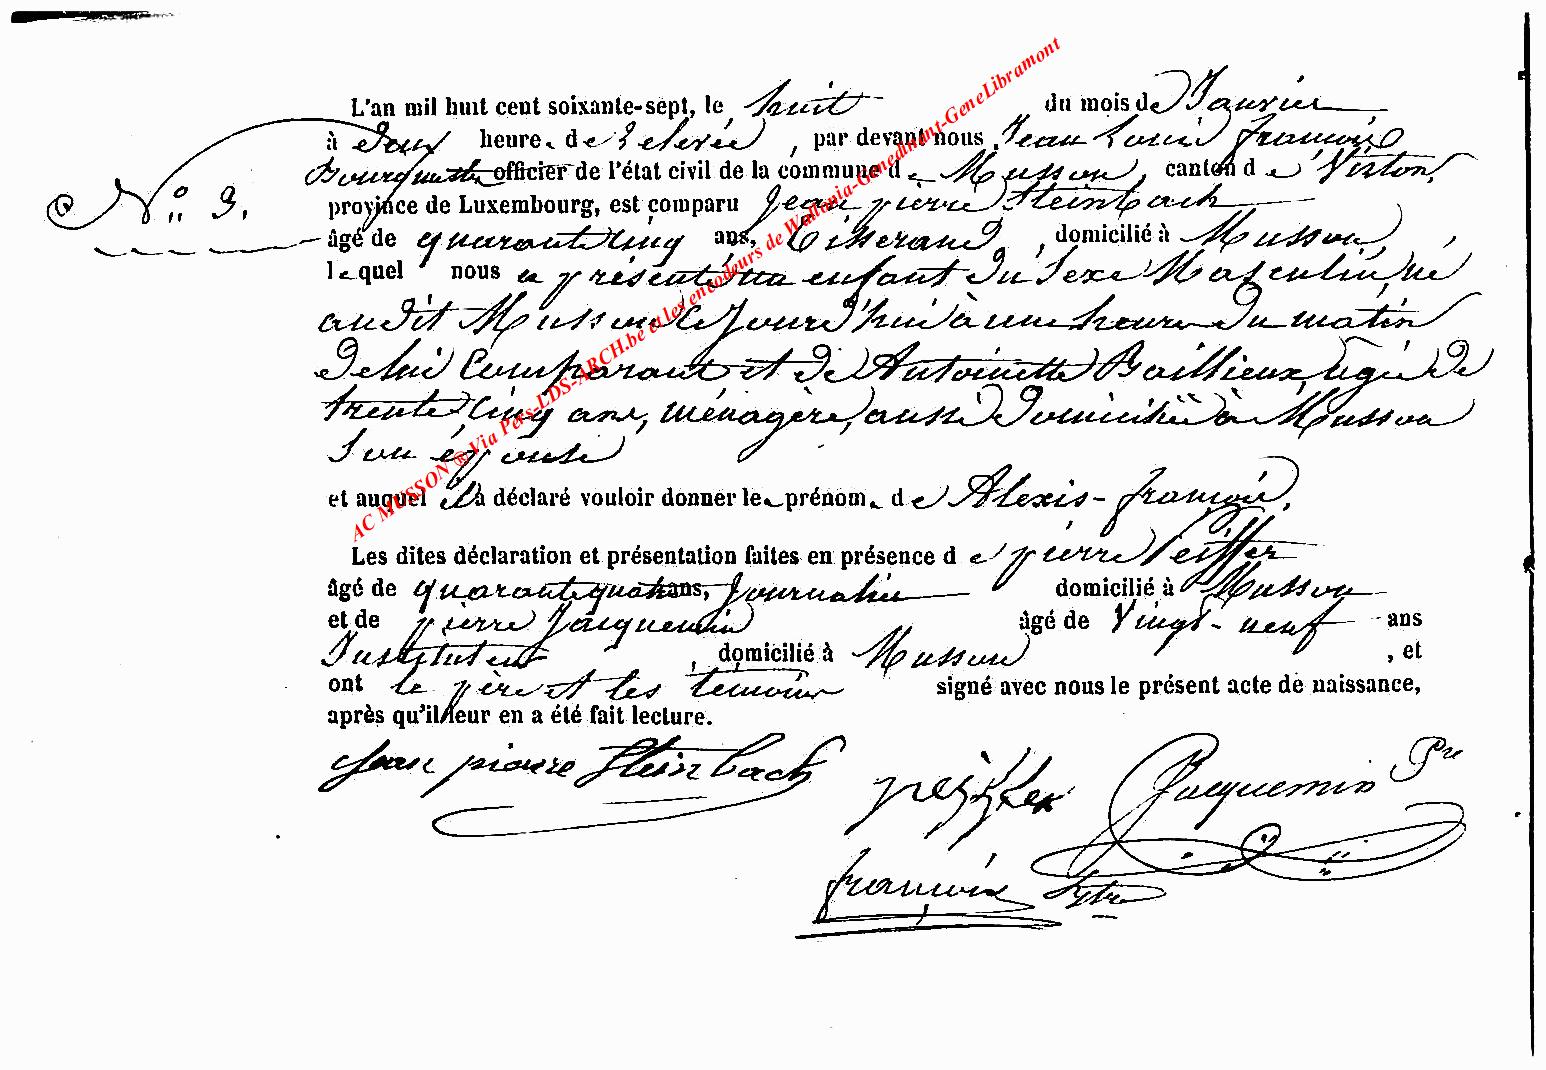 L'an mil huit cent soixante-sept, le huit du mois de Janvier
à deux heures de relevée, par devant nous Jean Louis françois
Bourguemestre officier de l'état civil de la commune de Musson, canton de Virton,
N° 3.
province de Luxembourg, est comparu Jean pierre Steinbach
âgé de quarante cinq ans, tisserand, domicilié à Musson,
lequel nous a présenté un enfant du sexe Masculin, né
au dit Musson le jour d'hui à une heure du matin
de lui Comparant et de Antoinette Baillieux, agée de
trente cinq ans, ménagère, aussi domiciliée à Musson
Son épouse
et auquel il a déclaré vouloir donner le prénom de Alexis-françois.
Les dites déclaration et présentation faites en présence de pierre Peiffer
âgé de quarante quatre ans, Journalier domicilié à Musson
et de pierre Jacquemin âgé de Vingt-neuf ans
Instituteur, domicilié à Musson, et
ont le père et les témoins signé avec nous le présent acte de naissance,
après qu'il leur en a été fait lecture.
Jean pierre Steinbach peiffer Jacquemin Pre
françois
AC MUSSON ® Via Pers-LDS-ARCH.be et les encodeurs de Wallonia-Genedinant-GeneLibramont